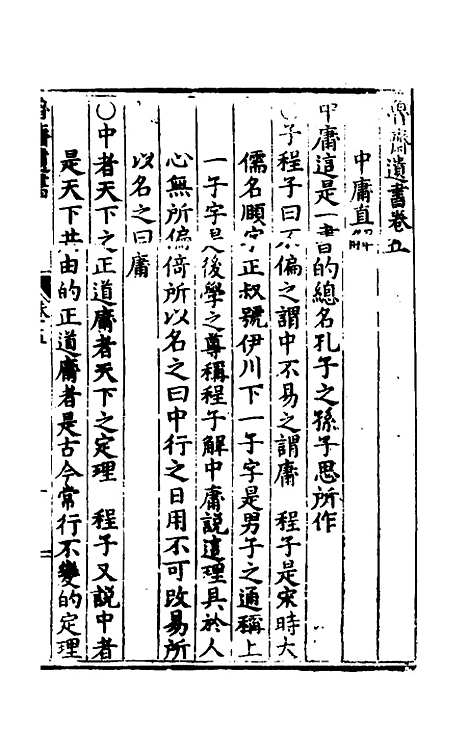 魯齋遺書卷五
中庸直解
中庸這是一書的總名孔子之孫子思所作
〇子程子曰不偏之謂中不易之謂庸　程子是宋時大
儒名頤字正叔號伊川下一子字是男子之通稱上
一子字是後學之尊稱程子解中庸說這理具於人
心無所偏倚所以名之曰中行之日用不可改易所
以名之曰庸
〇中者天下之正道庸者天下之定理　程子又說中者
是天下共由的正道庸者是古今常行不變的定理
魯齋遺書